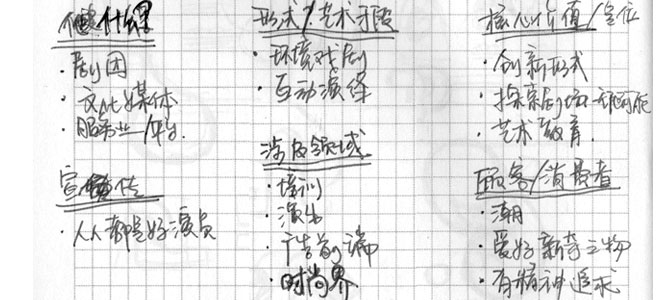 做什么
· 剧团
· 文化媒体
· 服务业/平台
宣传
· 人人都是好演员
形式/艺术手段
· 环境戏剧
· 互动演绎
涉及领域
· 培训
· 演出
· 广告前端
· 时尚界
核心价值/定位
· 创新形式
· 探索剧场
· 艺术教育
顾客/消费者
· 潮
· 爱好新奇之物
· 有精神追求